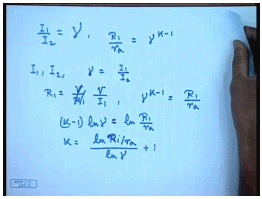 I₁/I₂ = γ, R₁/rₐ = γ^(K-1)
I₁, I₂, γ = I₁/I₂
R₁ = V/I₁, γ^(K-1) = R₁/rₐ
(K-1) ln γ = ln R₁/rₐ
K = (ln R₁/rₐ)/(ln γ) + 1